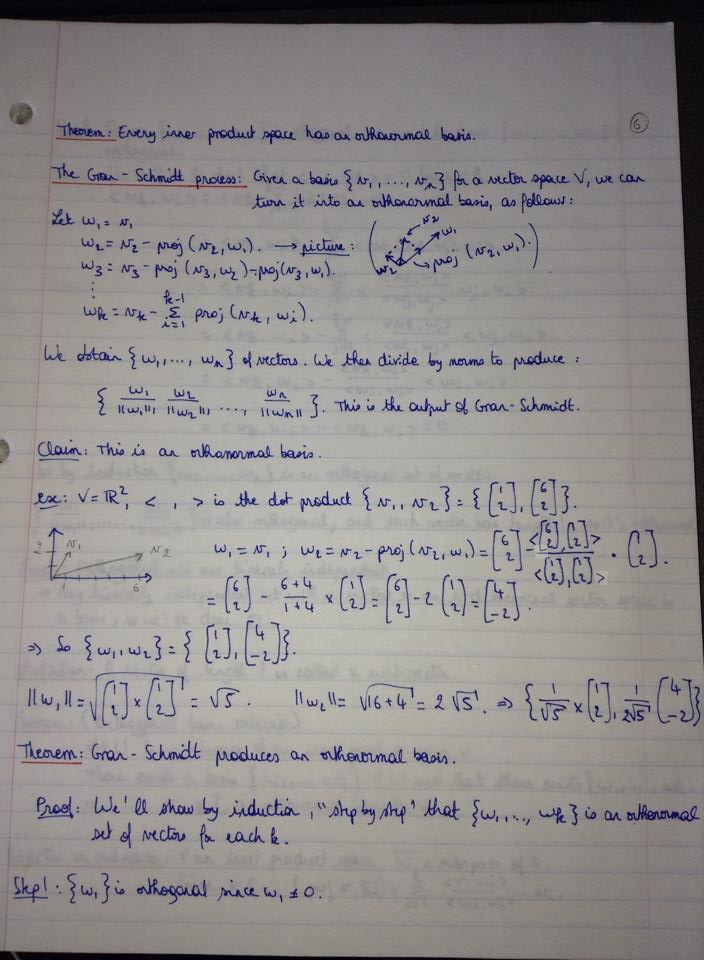 6
Theorem: Every inner product space has an orthonormal basis.
The Gran-Schmidt process: Given a basis {v₁, ..., vₙ} for a vector space V, we can
turn it into an orthonormal basis, as follows:
Let w₁ = v₁
w₂ = v₂ - proj (v₂, w₁). → picture: ( v₂ w₁ w₂ → proj (v₂, w₁). )
w₃ = v₃ - proj (v₃, w₂) - proj(v₃, w₁).
⋮
wₖ = vₖ - Σᵢ₌₁ᵏ⁻¹ proj (vₖ, wᵢ).
We obtain {w₁, ..., wₙ} of vectors. We then divide by norms to produce :
{ w₁/||w₁||, w₂/||w₂||, ..., wₙ/||wₙ|| }. This is the output of Gran-Schmidt.
Claim: This is an orthonormal basis.
ex: V = ℝ², < , > is the dot product {v₁, v₂} = { [1 2], [6 2] }.
2 v₁ v₂ 1 6
w₁ = v₁ ; w₂ = v₂ - proj (v₂, w₁) = [6 2] - <[6 2], [1 2]> / <[1 2], [1 2]> · [1 2].
= [6 2] - (6+4)/(1+4) × [1 2] = [6 2] - 2 [1 2] = [4 -2].
⇒ So {w₁, w₂} = { [1 2], [4 -2] }.
||w₁|| = √([1 2] × [1 2]) = √5. ||w₂|| = √(16+4) = 2√5. ⇒ { 1/√5 × [1 2], 1/2√5 [4 -2] }
Theorem: Gran-Schmidt produces an orthonormal basis.
Proof: We'll show by induction, "step by step" that {w₁, ..., wₖ} is an orthonormal
set of vectors for each k.
Step 1: {w₁} is orthogonal since w₁ ≠ 0.